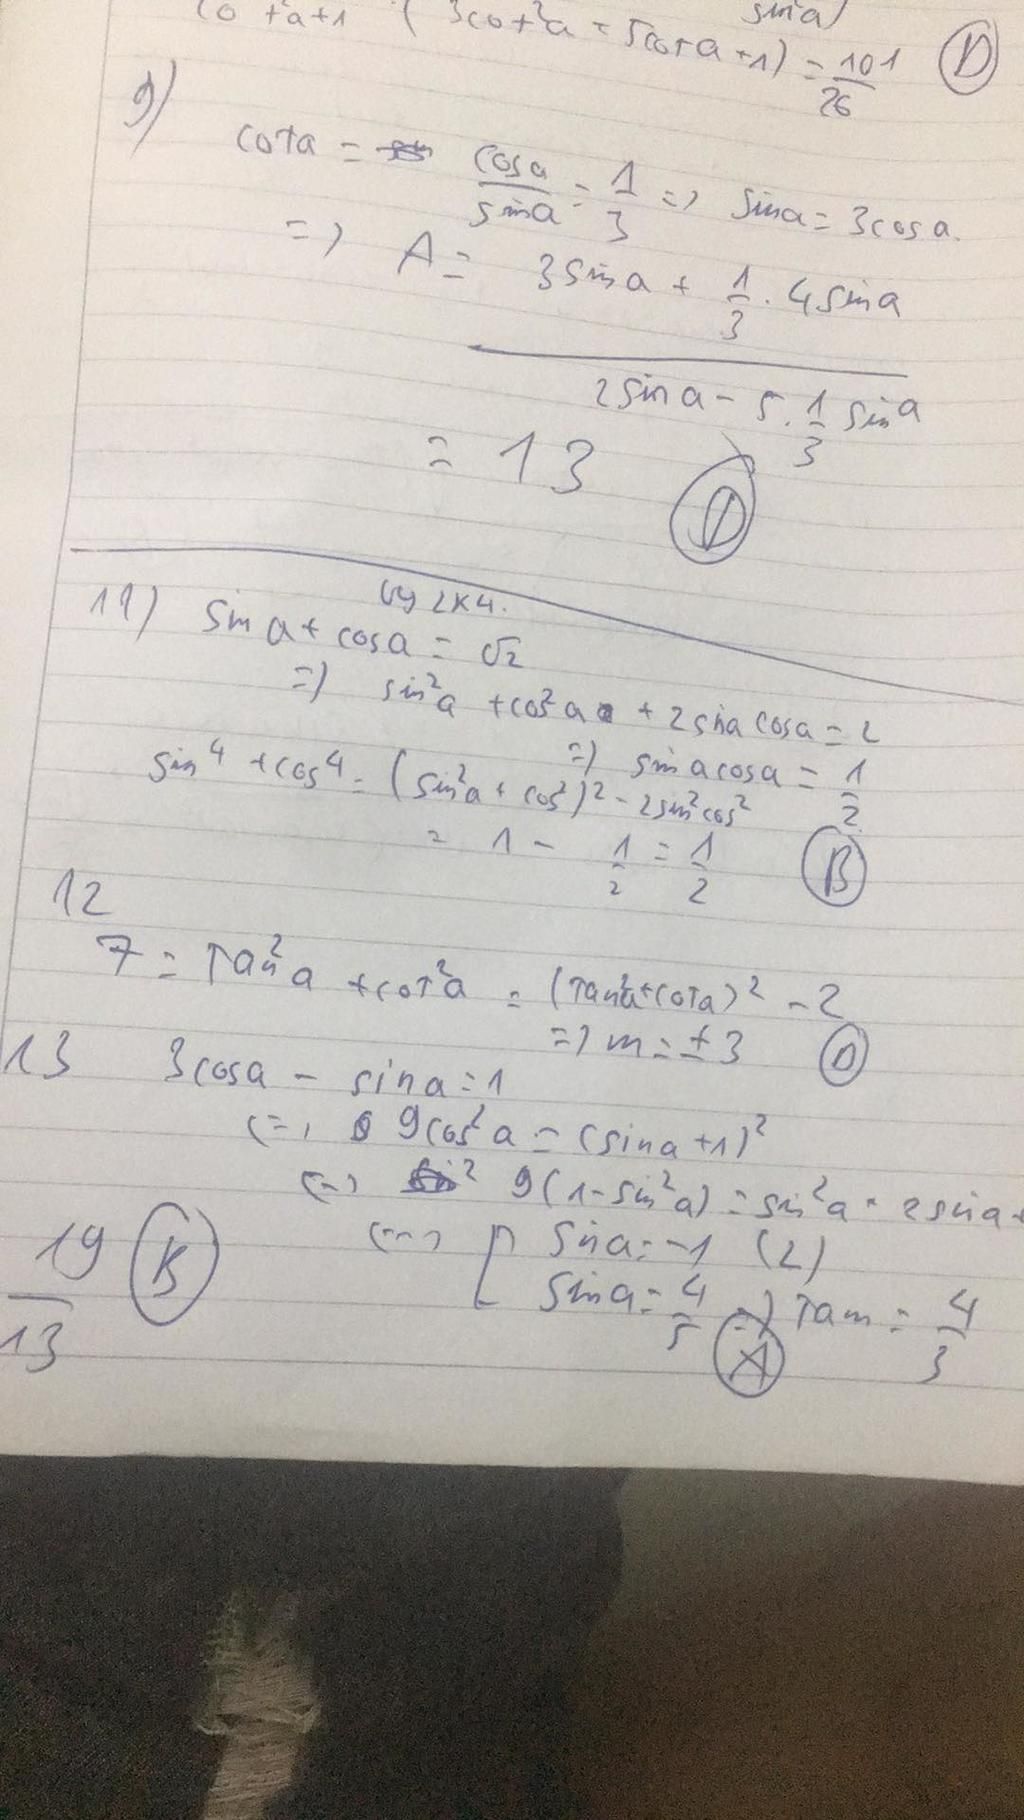 cot²a+1 ( 3cot²a = 5cota +1) = 101/26 (D)
sin²a)
9)
cota = cosa/sina = 1/3 => sina = 3cosa.
=> A = (3sina + 1/3 . 4sina)/(2sina - 5.1/3 sina)
= 13 (D)
11) sina + cosa = √2
=> sin²a + cos²a + 2sinacosa = 2
=> sinacosa = 1/2
sin⁴ + cos⁴ = (sin²a + cos²)² - 2sin²cos²
= 1 - 1/2 = 1/2 (B)
12
7 = Tan²a + cot²a = (Tan²a + cota)² - 2
=> m = ±3 (D)
13 3cosa - sina = 1
(=) 9cos²a = (sina+1)²
(=) 9(1-sin²a) = sin²a + 2sina +
(=) [ sina = -1 (L)
sina = 4/5 => Tan = 4/3
(A)
19/13 (B)